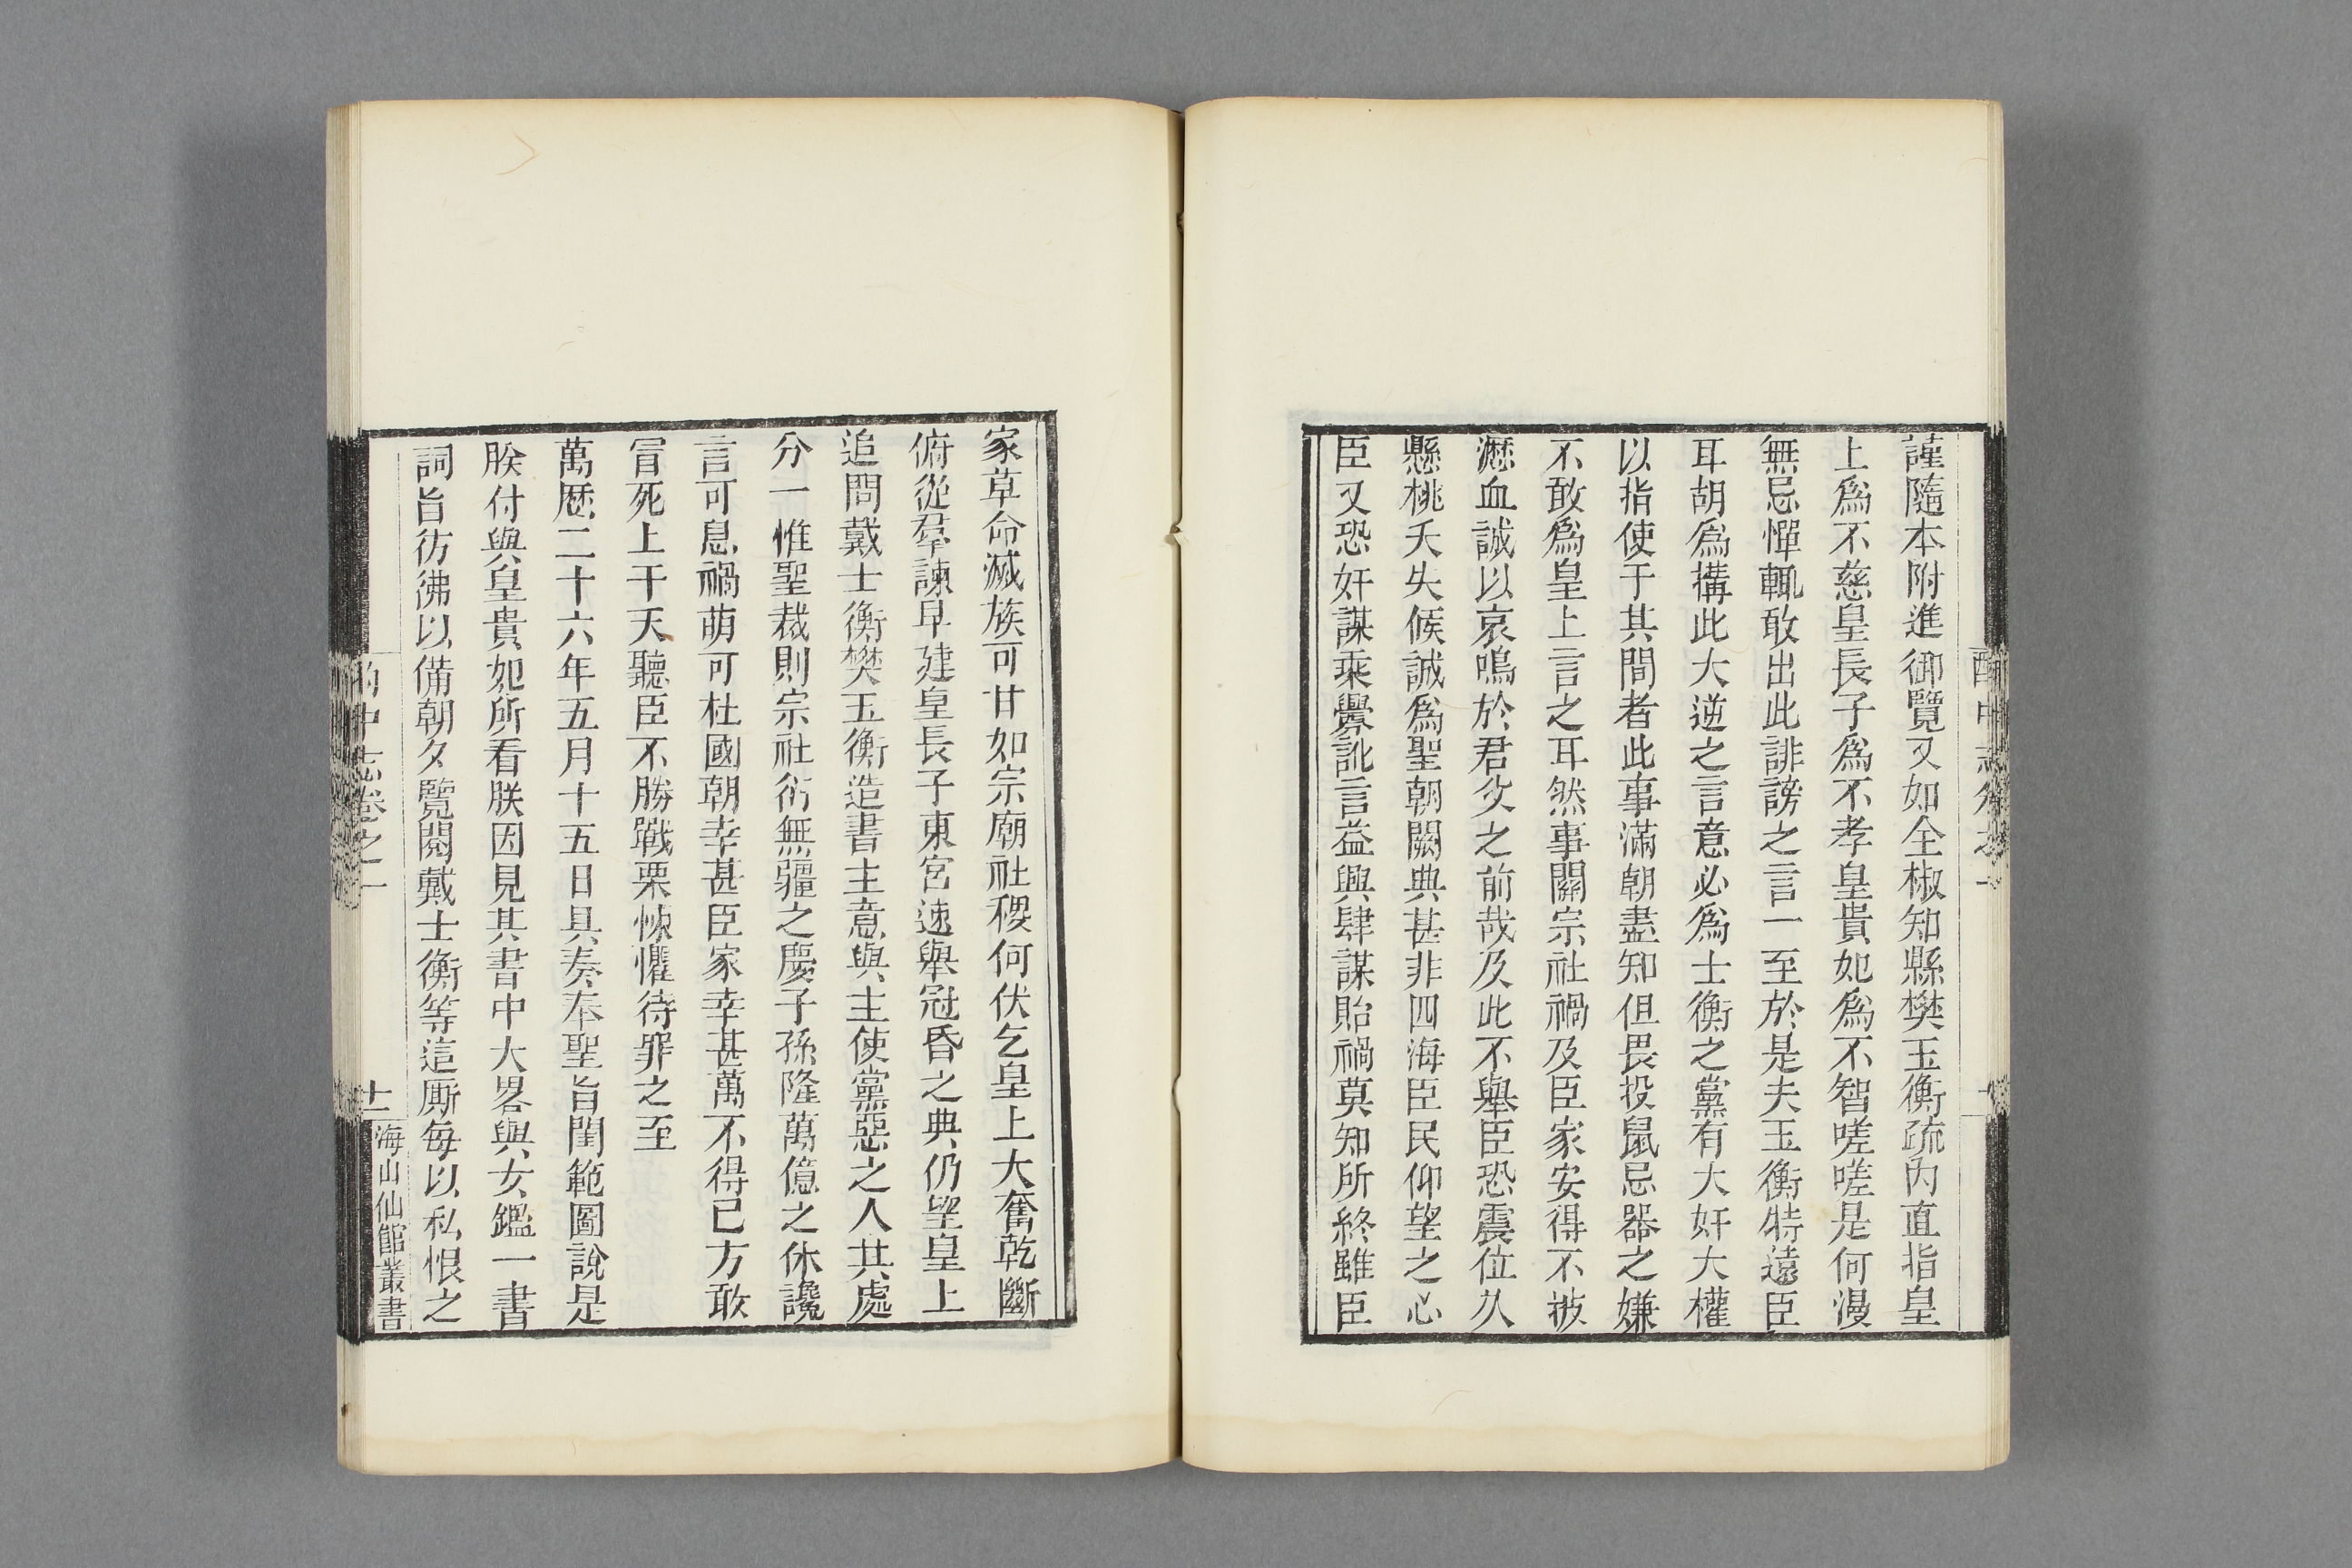 謹隨本附進御覽又如全椒知縣樊玉衡疏內直指皇
上爲不慈皇長子爲不孝皇貴妃爲不智嗟嗟是何漫
無忌憚輒敢出此誹謗之言一至於是夫玉衡特遠臣
耳胡爲搆此大逆之言意必爲士衡之黨有大奸大權
以指使于其間者此事滿朝盡知但畏投鼠忌器之嫌
不敢爲皇上言之耳然事關宗社禍及臣家安得不披
瀝血誠以哀鳴於君父之前哉及此不舉臣恐震位久
懸桃夭失候誠爲聖朝闕典甚非四海臣民仰望之心
臣又恐奸謀乘釁訛言益興肆謀貽禍莫知所終雖臣
家草命滅族可甘如宗廟社稷何伏乞皇上大奮乾斷
俯從羣諫早建皇長子東宮速舉冠昏之典仍望皇上
追問戴士衡樊玉衡造書主意與主使黨惡之人共處
分一惟聖裁則宗社衍無疆之慶子孫隆萬億之休讒
言可息禍萌可杜國朝幸甚臣家幸甚萬不得已方敢
冒死上干天聽臣不勝戰栗悚懼待罪之至
萬厯二十六年五月十五日具奏奉聖旨閨範圖說是
朕付與皇貴妃所看朕因見其書中大畧與女鑑一書
詞旨彷彿以備朝夕覽閱戴士衡等這厮每以私恨之
中志卷之一
十一
海山仙館叢書